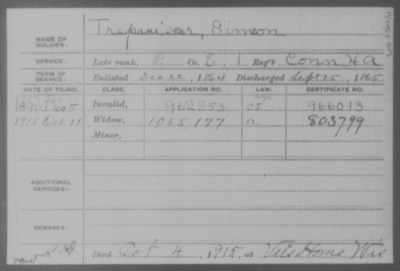 NAME OF SOLDIER: Trepanier, Simeon
SERVICE: Late rank, P Co. E, 1 Reg't Conn H A
TERM OF SERVICE: Enlisted Dec 22, 1864 Discharged Sept 25, 1865
DATE OF FILING. CLASS. APPLICATION NO. LAW. CERTIFICATE NO.
Invalid, 962253 966013
1915 Widow, 1055,177 a 803799
Minor,
ADDITIONAL SERVICES:
REMARKS:
Died Oct 4, 1915, at Vets Home Wis